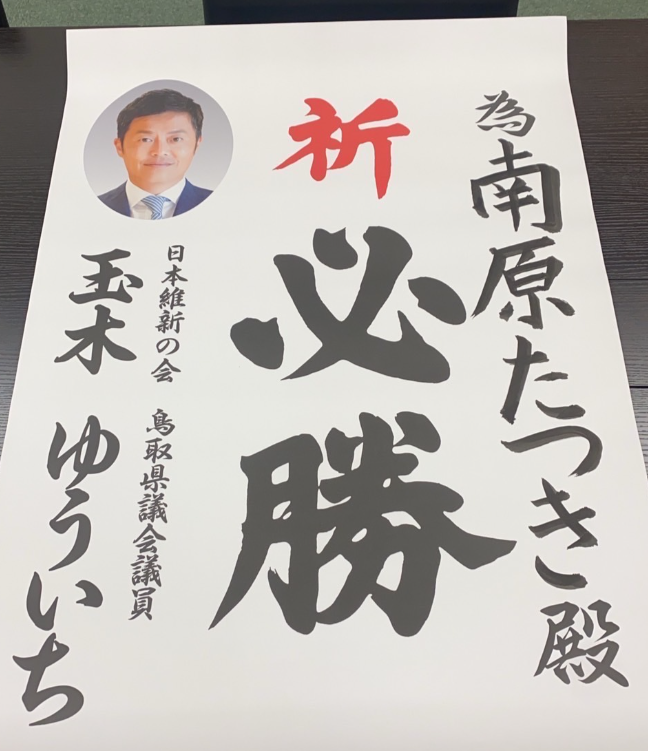 為南原たつき殿
祈
必勝
日本維新の会 鳥取県議会議員
玉木 ゆういち